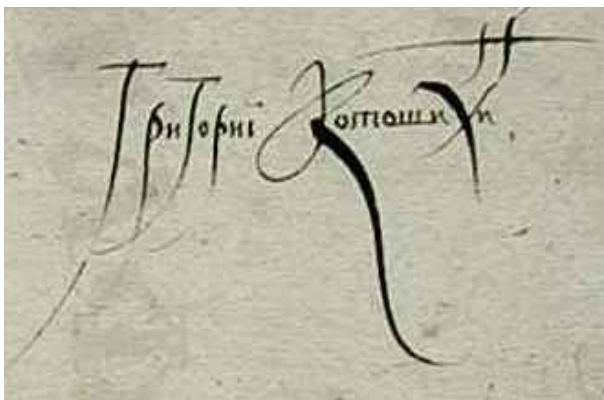 Григориї Котошихин